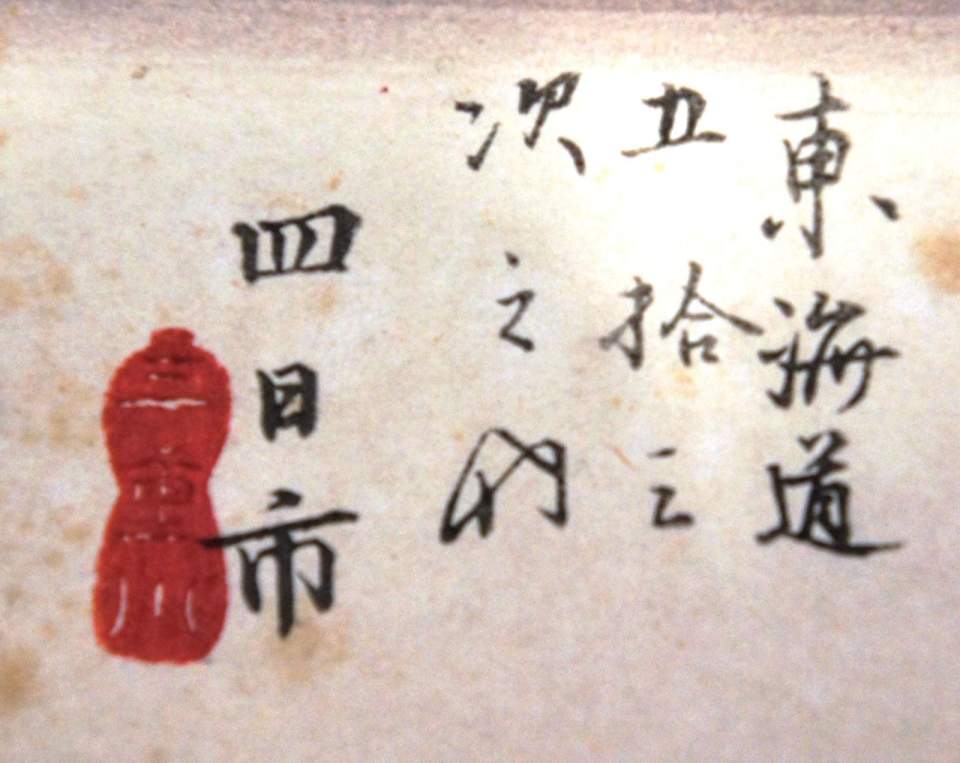 東海道
五拾三
次之内
四日市
三重川